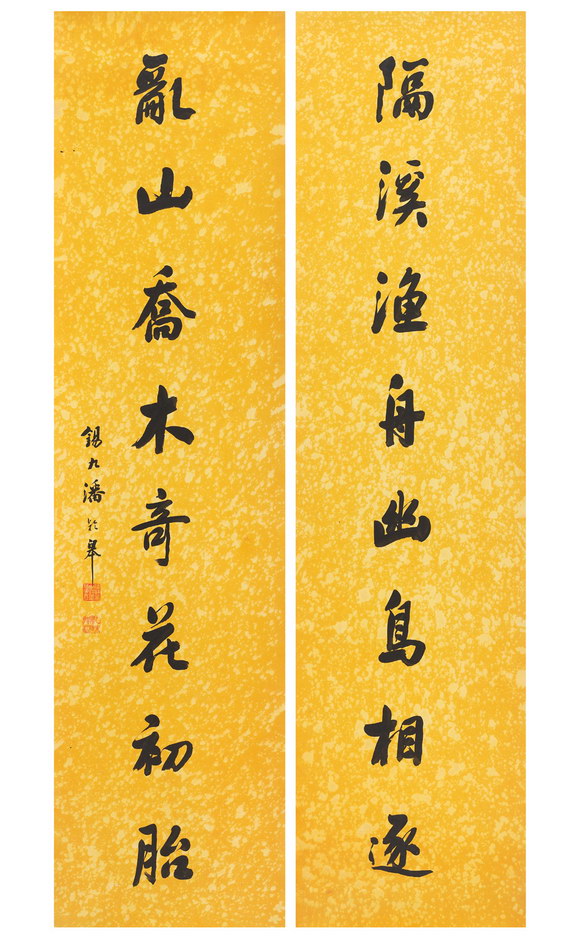 隔溪渔舟幽鳥相逐
亂山喬木奇花初胎
錫九潘齡皋